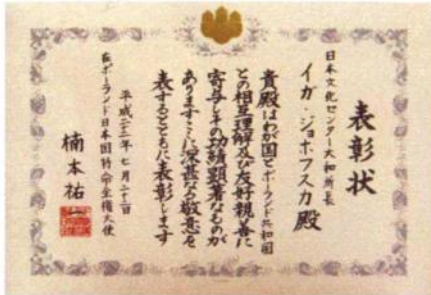 表彰状
日本文化センター大和所長
イガ・ジョホフスカ殿
貴殿はわが国とポーランド共和国
との相互理解及び友好親善に
寄与しその功績顕著なものが
ありますここに深甚なる敬意を
表するとともに表彰します
平成二十二年七月二十二日
在ポーランド日本国特命全権大使
楠本祐一